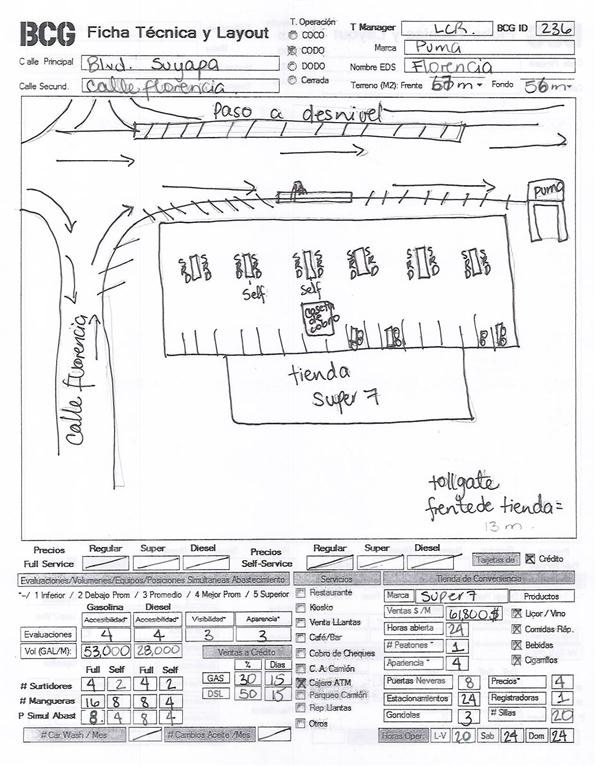 BCG Ficha Técnica y Layout
T. Operación
COCO
CODO
DODO
Cerrada
T Manager LCR. BCG ID 236
Marca Puma
Calle Principal Blvd. Suyapa
Nombre EDS Florencia
Calle Secund. Calle florencia.
Terreno (M2): Frente 67 m. Fondo 56 m.
Paso a desnivel
Puma
Self
Self
caseta de cobro
Calle florencia
tienda
Super 7
tollgate
frente de tienda=
13 m.
Precios Full Service Regular Super Diesel
Precios Self-Service Regular Super Diesel
Tarjetas de Crédito
Evaluaciones/Volumenes/Equipos/Posiciones Simultaneas Abastecimiento
*--/ 1 Inferior / 2 Debajo Prom / 3 Promedio / 4 Mejor Prom / 5 Superior
Gasolina Diesel
Accesibilidad* Accesibilidad* Visibilidad* Aparencia*
Evaluaciones 4 4 3 3
Vol (GAL/M): 53,000 28,000
Ventas a Crédito
% Dias
GAS 30 15
DSL 50 15
Full Self Full Self
# Surtidores 4 2 4 2
# Mangueras 16 8 8 4
P Simul Abast 8 4 8 4
# Car Wash / Mes
# Cambios Aceite /Mes
Servicios
Restaurante
Kiosko
Venta Llantas
Café/Bar
Cobro de Cheques
C. A. Camión
Cajero ATM
Parqueo Camión
Rep Llantas
Otros
Tienda de Conveniencia
Marca Super 7
Ventas $ /M 61,800$
Horas abierta 24
# Peatones * 1
Apariencia * 4
Productos
Liqor / Vino
Comidas Ráp.
Bebidas
Cigarrilos
Puertas Neveras 8
Precios* 4
Estacionamientos 24
Registradoras 1
Gondolas 3
# Sillas 20
Horas Oper. L-V 20 Sab 24 Dom 24